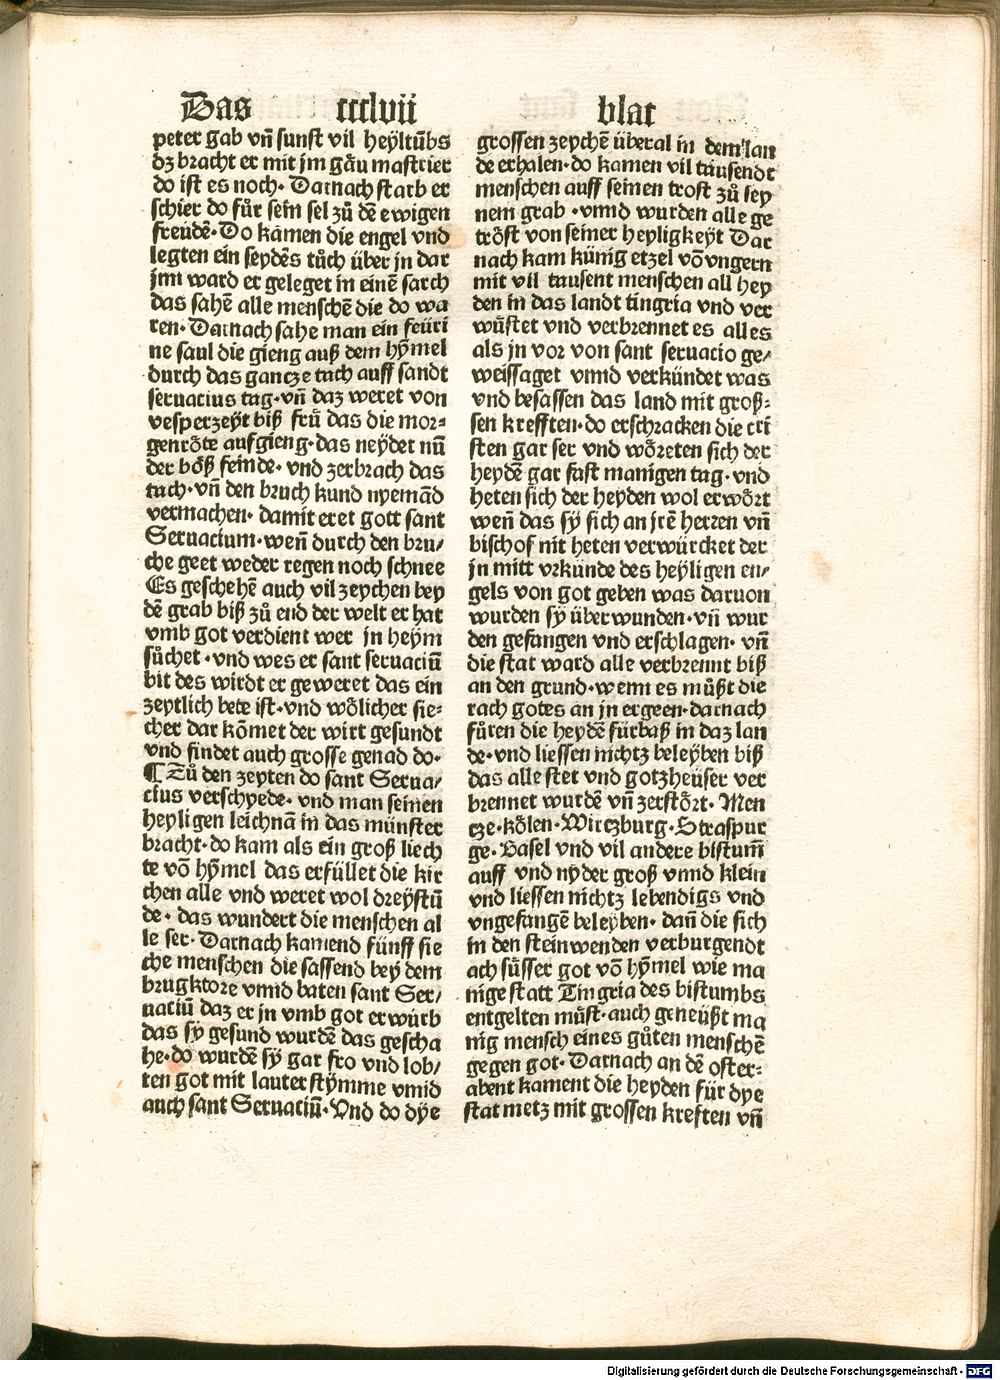 Das ccclvii blat
peter gab vñ sunst vil heyltũbs
dz bracht er mit jm gãu mastrier
do ist es noch. Darnach starb er
schier do fůr sein sel zů dẽ ewigen
freüdẽ. Do kamen die engel vnd
legten ein seydẽs tůch über jn dar
jnn ward er geleget in einẽ sarch
das sahẽ alle menschẽ die do wa
ren. Darnach sahe man ein feüri
ne saul die gieng auß dem hymel
durch das gancze tach auff sandt
seruacius tag. vñ daz weret von
vesperzeyt biß frů das die mor⸗
genröte aufgieng. das neydet nũ
der böß feinde. vnd zerbrach das
tach. vñ den bruch kund nyemãd
vermachen. damit eret gott sant
Seruacium. weñ durch den bru/
che geet weder regen noch schnee
Es geschehẽ auch vil zeychen bey
dẽ grab biß zů end der welt er hat
vmb got verdient wer jn heym
sůchet. vnd wes er sant seruaciũ
bit des wirdt er geweret das ein
zeytlich bete ist. vnd wölicher sie⸗
cher dar kõmet der wirt gesundt
vnd findet auch grosse genad do.
¶ Zů den zeyten do sant Serua/
cius verschyede. vnd man seinen
heyligen leichnã in das münster
bracht. do kam als ein groß liech
te võ hymel das erfüllet die kir
chen alle vnd weret wol dreystũ
de. das wundert die menschen al
le ser. Darnach kamend fünff sie
che menschen die sassend bey dem
brugktore vnnd baten sant Ser/
uaciũ daz er jn vmb got erwurb
das sy gesund wurdẽ das gescha
he. do wurdẽ sy gar fro vnd lob/
ten got mit lauter stymme vnnd
auch sant Seruaciũ. Vnd do dye
grossen zeychẽ überal in dem lan
de erhalen. do kamen vil tausendt
menschen auff seinen trost zů sey
nem grab. vnnd wurden alle ge
tröst von seiner heyligkeyt Dar
nach kam künig etzel võ vngern
mit vil tausent menschen all hey
den in das landt tingria vnd ver
wůstet vnd verbrennet es alles
als jn vor von sant seruacio ge/
weissaget vnnd verkündet was
vnd besassen das land mit groß⸗
sen krefften. do erschracken die cri
sten gar ser vnd wöreten sich der
heydẽ gar fast manigen tag. vnd
heten sich der heyden wol erwört
weñ das sy sich an jrẽ herren vñ
bischof nit heten verwürcket der
jn mitt vrkünde des heyligen en/
gels von got geben was daruon
wurden sy überwunden. vñ wur
den gefangen vnd erschlagen. vñ
die stat ward alle verbrennt biß
an den grund. wenn es můßt die
rach gotes an jn ergeen. darnach
fůren die heydẽ fürbaß in daz lan
de. vnd liessen nichtz beleyben biß
das alle stet vnd gotzheüser ver
brennet wurdẽ vñ zerstört. Men
cze. kölen. Wirczburg. Straspur
ge. Basel vnd vil andere bistum̃
auff vnd nyder groß vnnd klein
vnd liessen nichtz lebendigs vnd
vngefangẽ beleyben. dañ die sich
in den steinwenden verburgendt
ach süsser got võ hymel wie ma
nige statt Tingria des bistumbs
entgelten můst. auch geneüßt ma
nig mensch eines gůten menschẽ
gegen got. Darnach an dẽ oster⸗
abent kament die heyden für dye
stat metz mit grossen kreften vñ
Digitalisierung gefördert durch die Deutsche Forschungsgemeinschaft - DFG